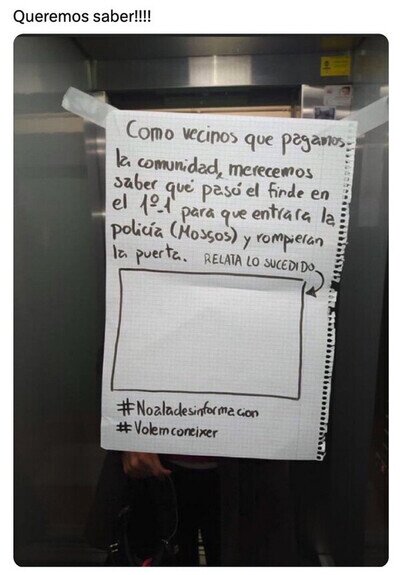 Queremos saber!!!!
Como vecinos que pagamos
la comunidad, merecemos
saber qué pasó el finde en
el 1º-1ª para que entrara la
policía (Mossos) y rompieran
la puerta. RELATA LO SUCEDIDO
#Noaladesinformacion
#Volemconeixer